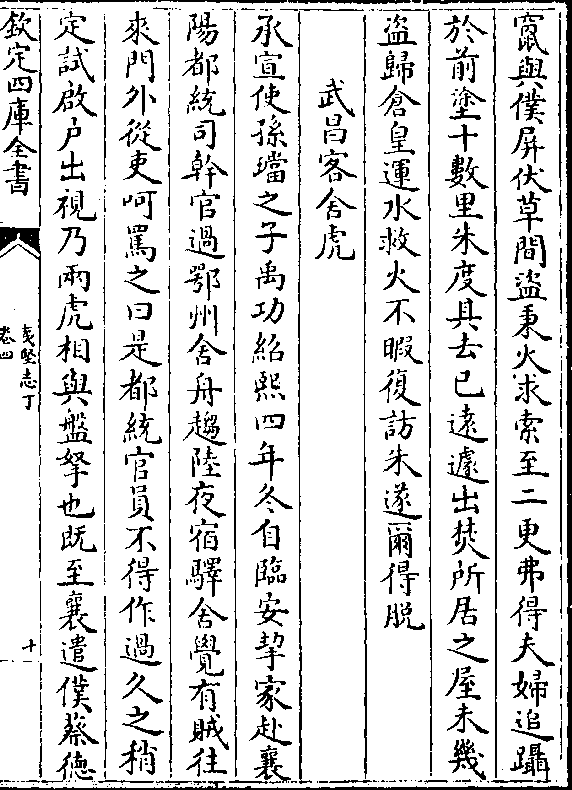 竄與僕屏伏草間盜秉火求索至二更弗得夫婦追躡
於前塗十數里朱度其去已遠遽出焚所居之屋未幾
盜歸倉皇運水救火不暇復訪朱遂爾得脱
武昌客舍虎
承宣使孫璫之子禹功紹熙四年冬自臨安挈家赴襄
陽都統司幹官過鄂州舍舟趨陸夜宿驛舍覺有賊往
來門外從吏呵罵之曰是都統官員不得作過久之稍
定試啟户出視乃兩虎相與盤拏也既至襄遣僕蔡德
欽定四庫全書
夷堅志丁
卷四
十